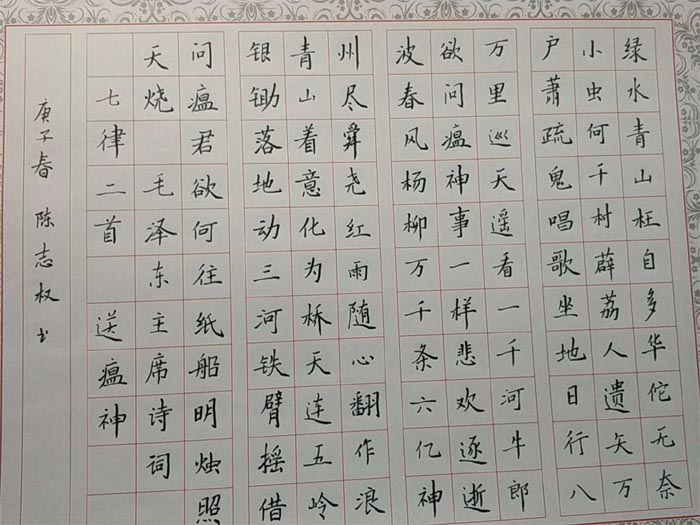 绿水青山枉自多华佗无奈
小虫何千村薜荔人遗矢万
户萧疏鬼唱歌坐地日行八
万里巡天遥看一千河牛郎
欲问瘟神事一样悲欢逐逝
波春风杨柳万千条六亿神
州尽舜尧红雨随心翻作浪
青山着意化为桥天连五岭
银锄落地动三河铁臂摇借
问瘟君欲何往纸船明烛照
天烧 毛泽东主席诗词
七律二首 送瘟神
庚子春 陈志权书